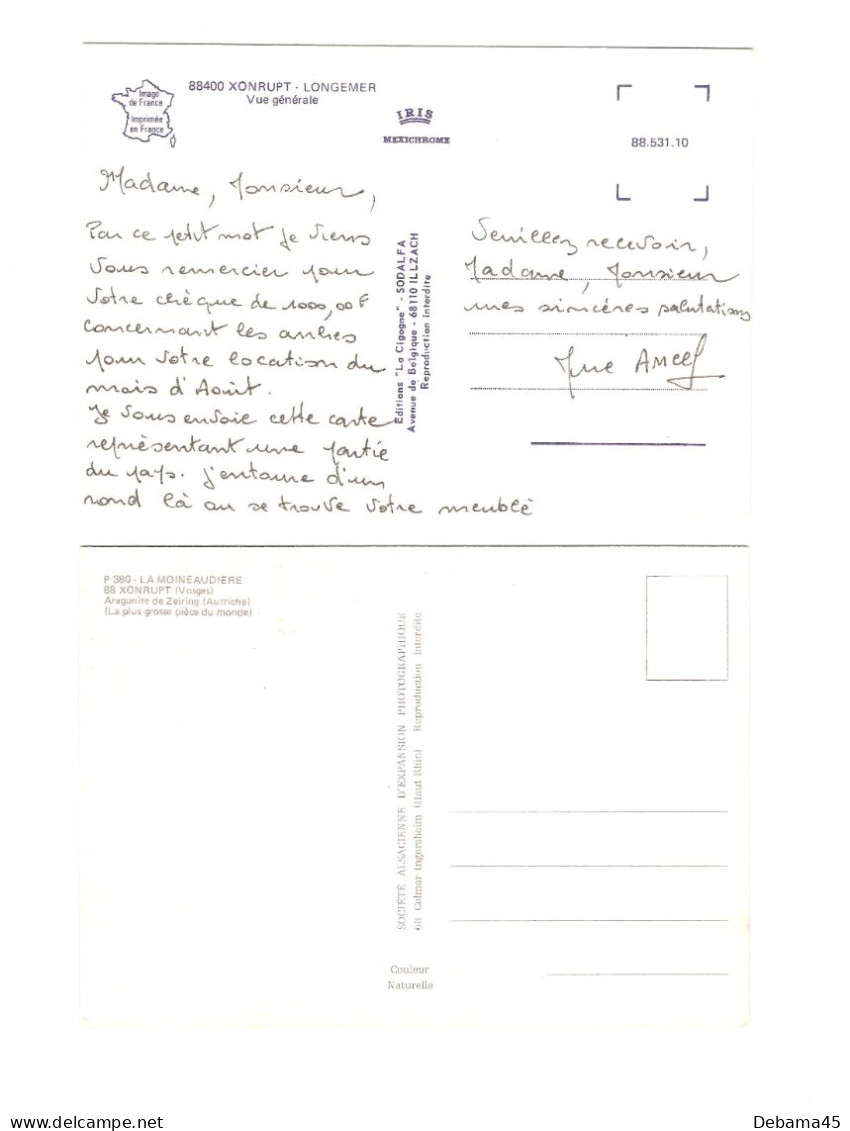 88400 XONRUPT - LONGEMER
Vue générale
Image
de France
Imprimée
en France
IRIS
MEXICHROME
88.531.10
Madame, Monsieur,
Par ce petit mot je viens
vous remercier pour
votre chèque de 1000,00F
concernant les arrhes
pour votre location du
mois d'Août.
Je vous envoie cette carte
représentant une partie
du pays. j'entoure d'un
rond là ou se trouve votre meublé
Editions "La Cigogne" - SODALFA
Avenue de Belgique - 68110 ILLZACH
Reproduction interdite
Veuillez recevoir,
Madame, Monsieur
mes sincères salutations
Mme
P 380 - LA MOINEAUDIERE
88 XONRUPT (Vosges)
Aragonite de Zeiring (Autriche)
(La plus grosse pièce du monde)
SOCIÉTÉ ALSACIENNE D'EXPANSION PHOTOGRAPHIQUE
68 Colmar-Ingersheim (Haut Rhin) Reproduction interdite
Couleur
Naturelle
Debama45